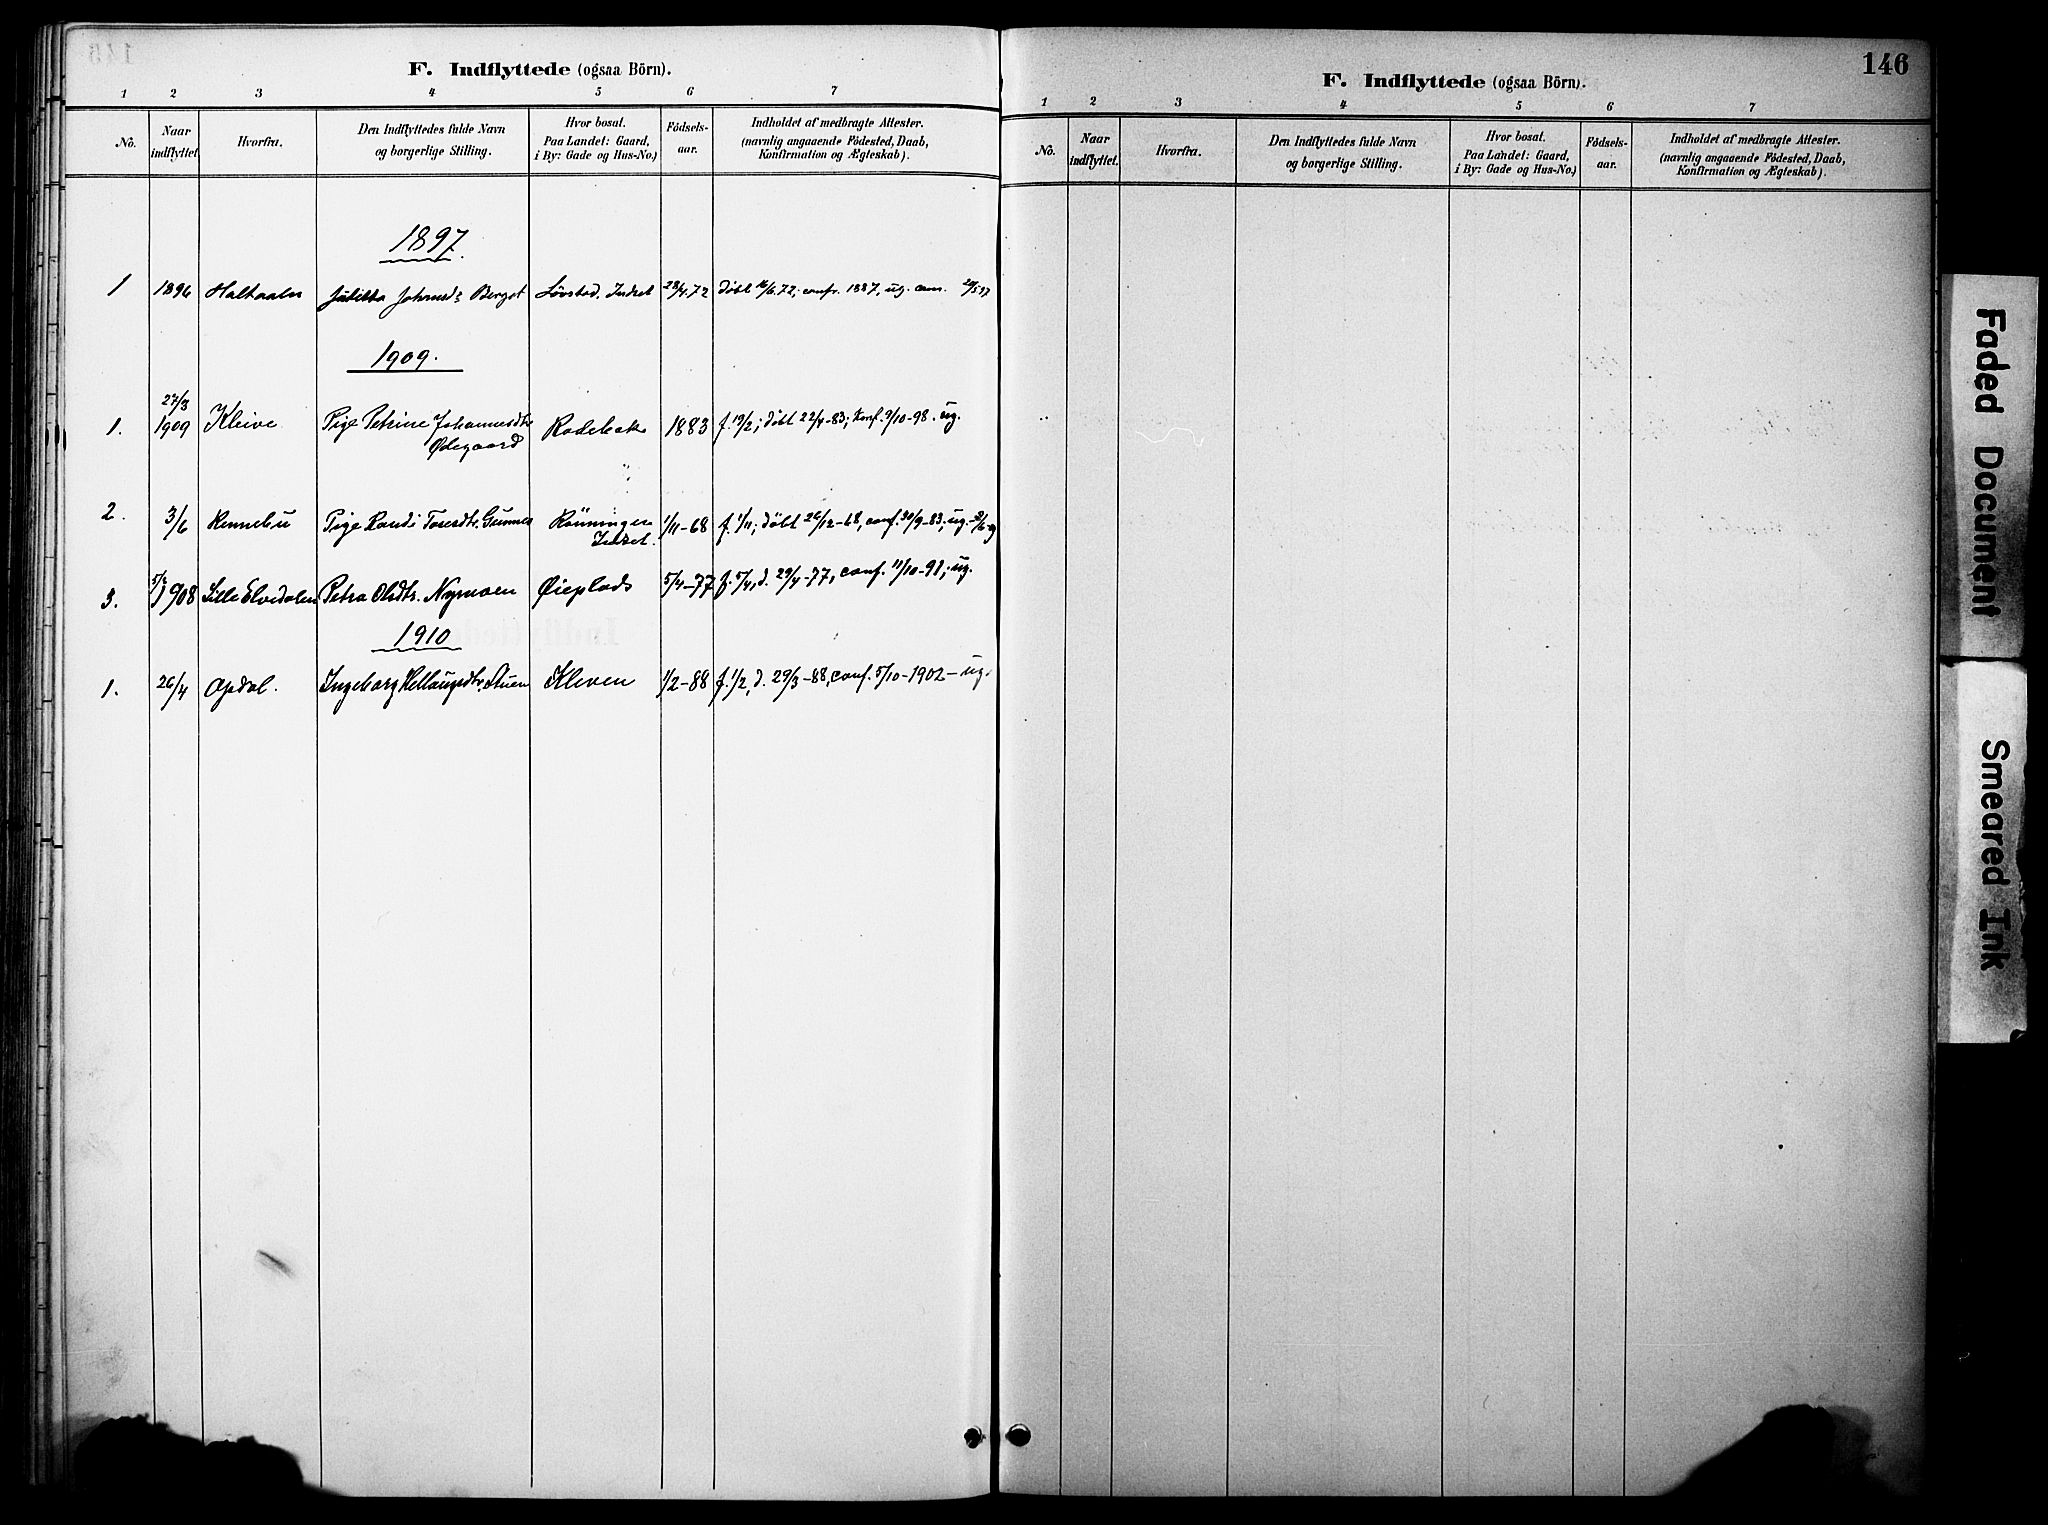 F. Indflyttede (ogsaa Börn).
1 2 3 4 5 6 7
No. Naar indflyttet. Hvorfra. Den Indflyttedes fulde Navn og borgerlige Stilling. Hvor bosat. Paa Landet: Gaard, i By: Gade og Hus-No.) Födsels-aar. Indholdet af medbragte Attester. (navnlig angaaende Födested, Daab, Konfirmation og Ægteskab).
1897.
1 1896 Holtaalen Johansd: Løvstad, Indset 28/4.72 Døbt 16/6.72, confr. 1887, ug.
1909.
1. 27/3 1909 Kleive Pige Petrine Johannesdtr Ødegaard 1883 f. 19/2; døbt 22/4-83; Konf. 9/10-98. ug.
2. 3/6 Rennebu Pige Randi Toresdtr. Gunnes Rönningen Indset. 1/11-68 f. 1/11; døbt 26/12-68, conf. 30/9-83; ug.
3. 1908 Lille Elvedalen Petra Olsdtr. Nymoen Øieplads 5/4-77 f. 5/4, d. 29/4-77, conf. 11/10-91; ug.
1910
1. 26/4 Opdal. Ingeborg Stuen Kleven 1/2-88 f. 1/2, d. 29/3-88, conf. 5/10-1902 - ug.
146
F. Indflyttede (ogsaa Börn).
1 2 3 4 5 6 7
No. Naar indflyttet. Hvorfra. Den Indflyttedes fulde Navn og borgerlige Stilling. Hvor bosat. Paa Landet: Gaard, i By: Gade og Hus-No.) Födsels-aar. Indholdet af medbragte Attester. (navnlig angaaende Födested, Daab, Konfirmation og Ægteskab).
Faded Document
Smeared Ink